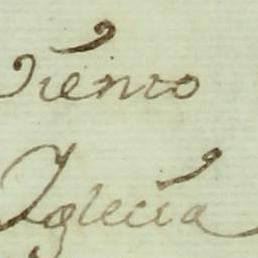 viento
Iglecia